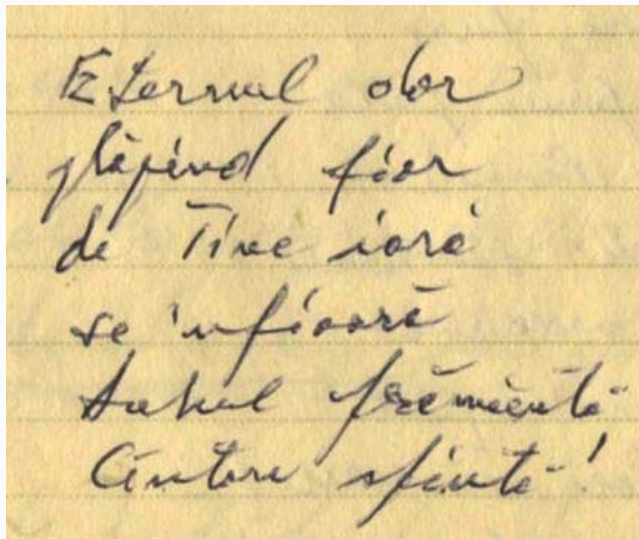 Eternul dor
plăpînd fior
de Tine iară
se 'nfioară
frămîntă
Cîntare sfîntă!